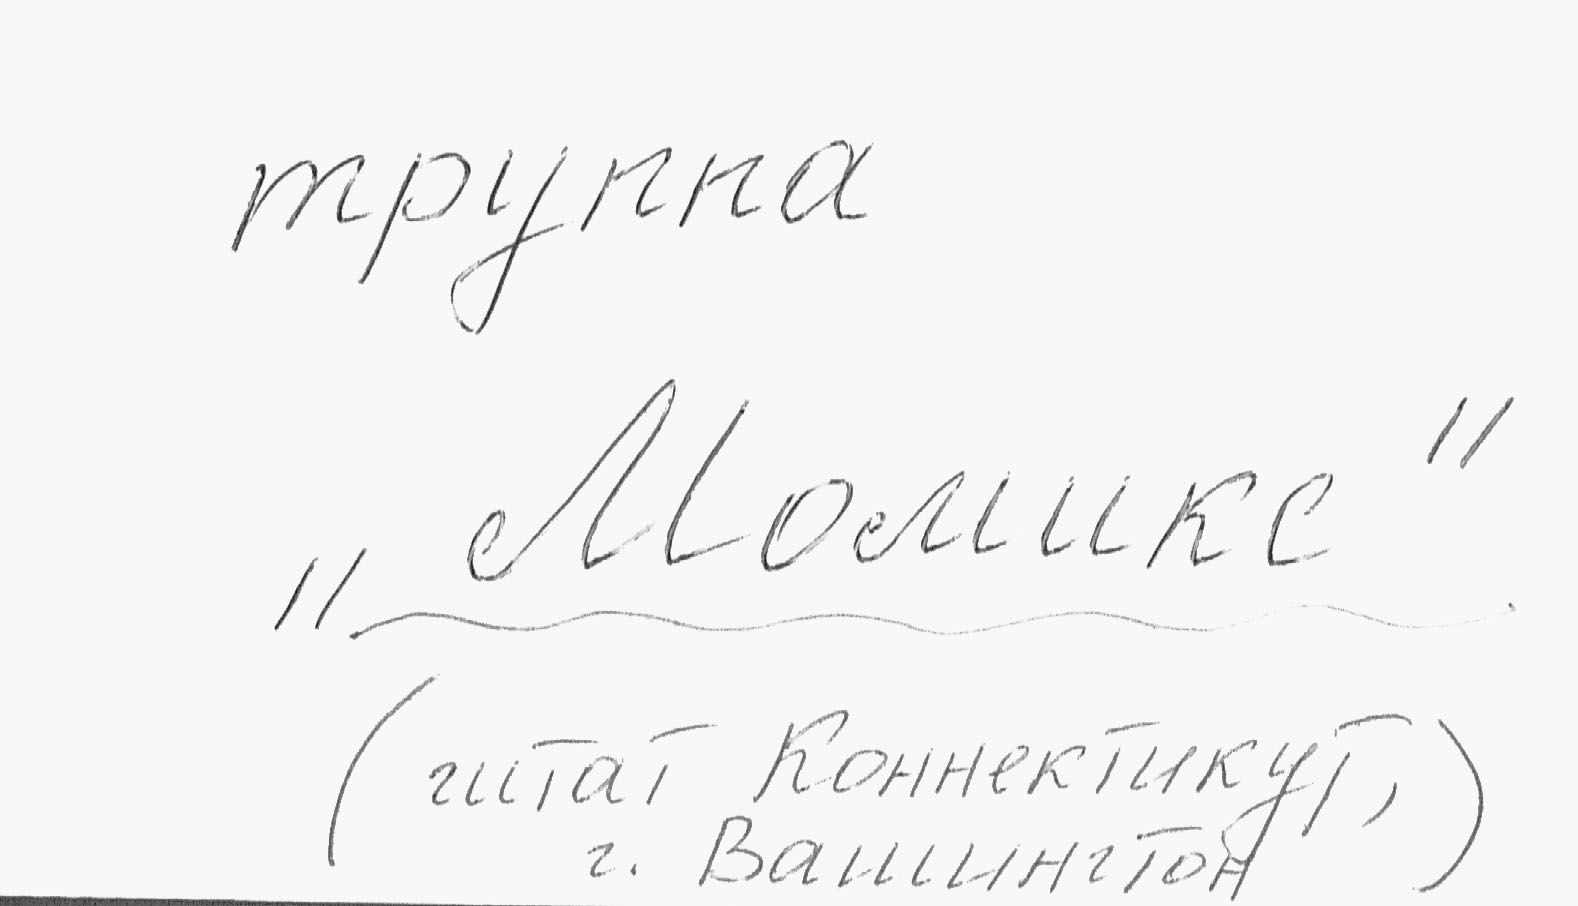 труппа
„Момикс"
(штат Коннектикут,
г. Вашингтон)